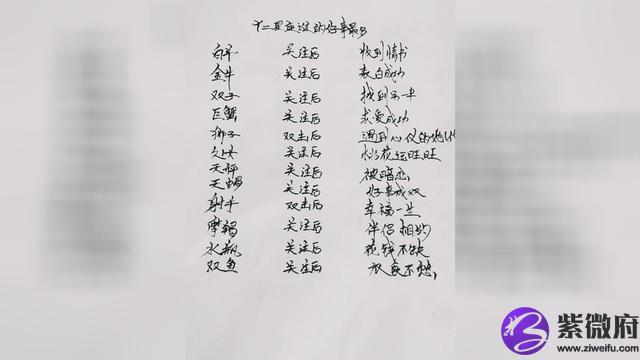 白羊 关注后 收到情书
金牛 关注后 表白成功
双子 关注后 找到另一半
巨蟹 关注后 求爱成功
狮子 双击后 遇到心仪的他
处女 关注后 桃花运旺旺
天秤 关注后 被暗恋
天蝎 关注后 好事成双
射手 双击后 幸福一生
摩羯 关注后 伴侣相约
水瓶 关注后 花钱不缺
双鱼 关注后 衣食不愁
紫微府
www.ziweifu.com